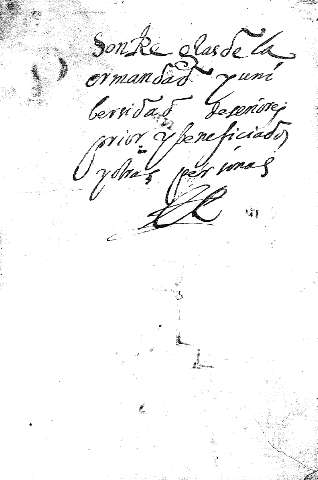 Son Reglas de la
ermandad y uni
bersidad de señores
prior y beneficiados
y otras personas